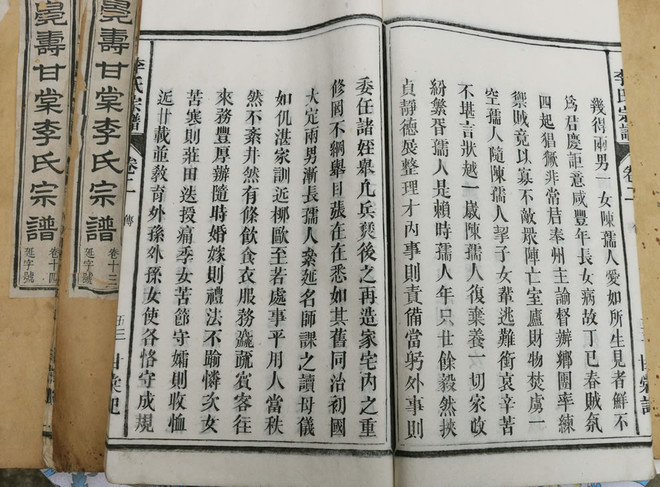 李氏宗譜 卷二
幾得兩男一女陳孺人愛如所生見者鮮不
為君慶詎意咸豐年長女病故丁巳春賊氛
四起猖獗非常君奉州主諭督辦鄉團率練
禦賊竟以寡不敵眾陣亡室廬財物焚虜一
空孺人隨陳孺人挈子女輩逃難銜哀辛苦
不堪言狀越一歲陳孺人復棄養一切家政
紛繁胥孺人是賴時孺人年只廿餘毅然挾
貞靜德展整理才內事則責備當躬外事則
委任諸姪舉凡兵燹後之再造家宅內之重
修罔不綱舉目張在在悉如其舊同治初國
大定兩男漸長孺人延名師課之讀母儀
如仇湛家訓近歐至若處事平用人當秩
然不紊井然有條飲食衣服務疏賓客往
來務豐厚辦隨時婚嫁則禮法不踰憐次女
苦寒則莊田送授痛季女苦節守孀則收恤
近廿載並教育外孫外孫女使各恪守成規
李氏宗譜 卷二 傳 甘棠記
壽甘棠李氏宗譜 卷十三
延字號
壽甘棠李氏宗譜 卷十四
延字號